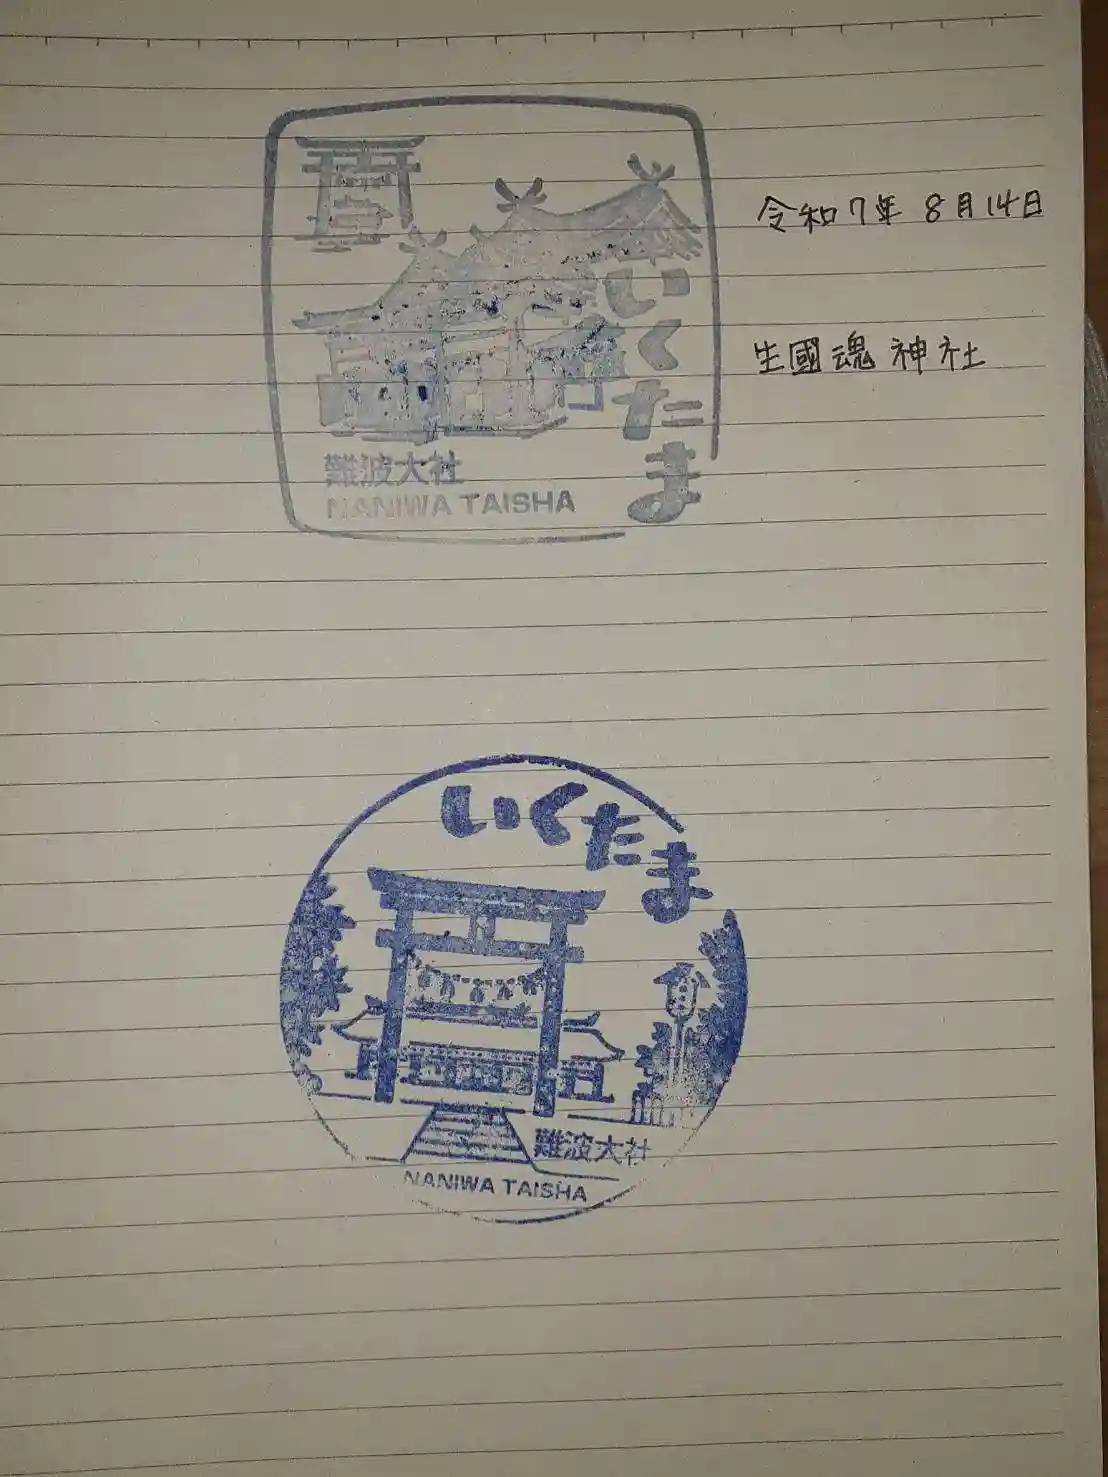 令和7年 8月14日
生國魂神社
いくたま
難波大社
NANIWA TAISHA
いくたま
難波大社
NANIWA TAISHA